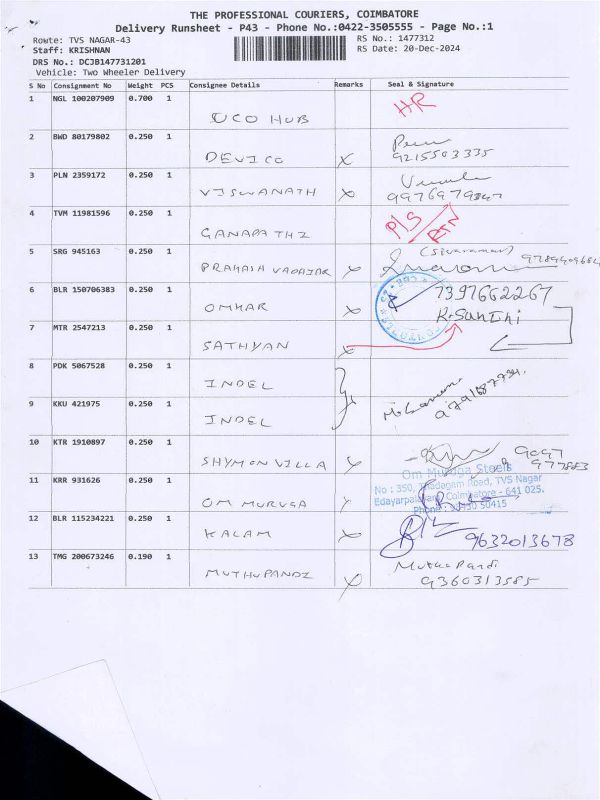 THE PROFESSIONAL COURIERS, COIMBATORE
Delivery Runsheet - P43 - Phone No.:0422-3505555 - Page No.:1
Route: TVS NAGAR-43
RS No.: 1477312
Staff: KRISHNAN
RS Date: 20-Dec-2024
DRS No.: DCJB147731201
Vehicle: Two Wheeler Delivery
S No Consignment No Weight PCS Consignee Details Remarks Seal & Signature
1 NGL 100207909 0.700 1
UCO HUB HR
2 BWD 80179802 0.250 1
DEVICO X 9215503335
3 PLN 2359172 0.250 1
VISWANATH X
4 TVM 11981596 0.250 1
GANAPATHI P/S
5 SRG 945163 0.250 1
X
6 BLR 150706383 0.250 1 7397662267
OMKAR X K.Santhi
7 MTR 2547213 0.250 1
SATHYAN X
8 PDK 5067528 0.250 1
INDEL
9 KKU 421975 0.250 1
INDEL
10 KTR 1910897 0.250 1
SHYMON VILLA X
Om Muruga Steels
11 KRR 931626 0.250 1
OM MURUGA X
12 BLR 115234221 0.250 1
KALAM X 9632013678
13 TMG 200673246 0.190 1 Muthu Pandi
MUTHUPANDI X 9360313585